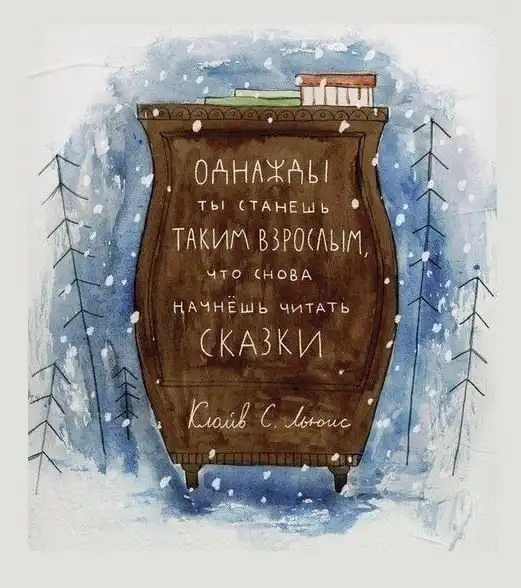 ОДНАЖДЫ
ТЫ СТАНЕШЬ
ТАКИМ ВЗРОСЛЫМ,
ЧТО СНОВА
НАЧНЁШЬ ЧИТАТЬ
СКАЗКИ
Клайв С. Льюис